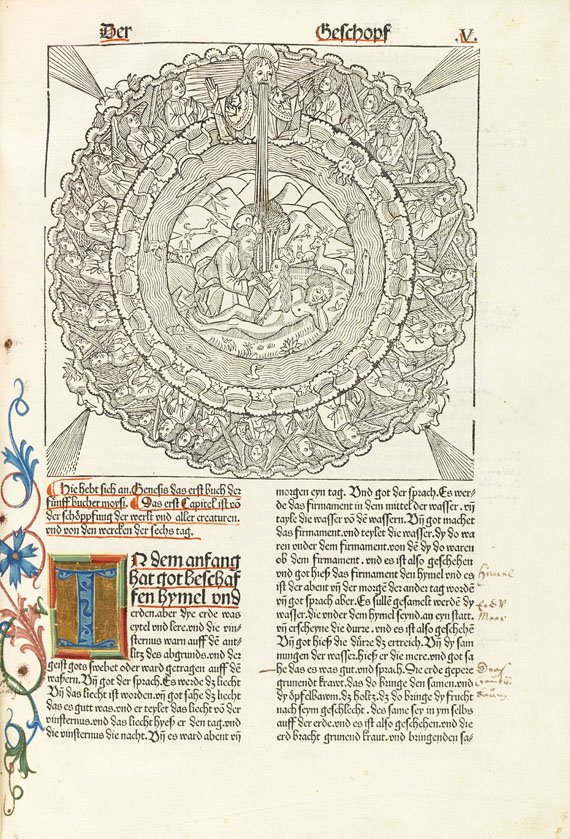 Der Geschopf .V.
Hie hebt sich an. Genesis das erst buch der
fünff bucher moysi. Das erst Capitel ist vō
der schöpffung der werlt vnd aller creaturen.
vnd von den wercken der sechs tag.
IN dem anfang
hat got beschaf
fen hymel vnd
erden. aber dye erde was
eytel vnd lere. vnd die vin⸗
sternus warn auff dē ant⸗
litz des abgrunds. vnd der
geist gots swebet oder ward getragen auff dē
wassern. Vñ got der sprach. Es werde dz liecht
Vñ das liecht ist worden. vñ got sahe dz liecht
das es gutt was. vnd er teylet das liecht vō der
vinsternus. vnd das liecht hyeß er den tag. vnd
die vinsternus die nacht. Vñ es ward abent vñ
morgen eyn tag. Vnd got der sprach. Es wer⸗
de das firmament in dem mittel der wasser. vñ
tayle die wasser vō dē wassern. Vñ got machet
das firmament. vnd teylet die wasser. dy do wa
ren vnder dem firmament. von dē dy do waren
ob dem firmament. vnd es ist also geschehen
vnd got hieß das firmament den hymel vnd es
ist der abent vñ der morgē der ander tag wordē
vñ got sprach aber. Es süllē gesamelt werdē dy
wasser. die vnder dem hymel seynd. an eyn statt.
vñ erscheyne die dürre. vnd es ist also geschehē
Vñ got hieß die dürre dz ertreich. Vñ dy sam
nungen der wasser. hieß er die mere. vnd got sa
he das es was gut. vnd sprach. Die erde gepere
grunendt kraut. das do bringe den samen. vnd
dy öpfelbawm. dz holtz. dz do bringe dy frucht
nach seym geschlecht. des same sey in ym selbs
auff der erde. vnd es ist also geschehen. vnd die
erd bracht grunend kraut. vnd bringenden sa⸗